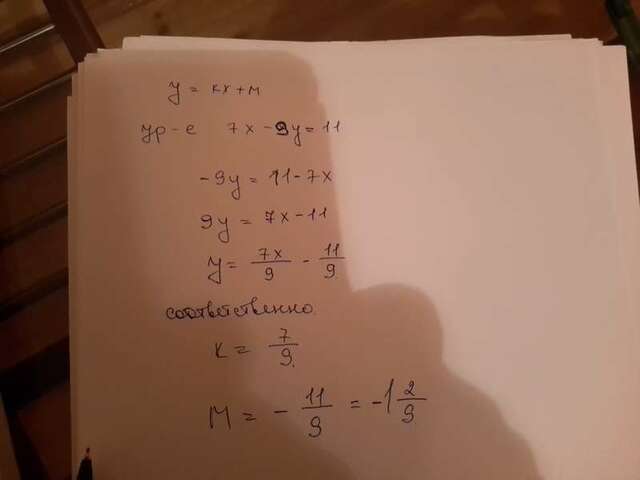 y = кx + м
ур-е 7x - 9y = 11
-9y = 11 - 7x
9y = 7x - 11
y = 7x/9 - 11/9
соответственно.
к = 7/9.
м = - 11/9 = -1 2/9